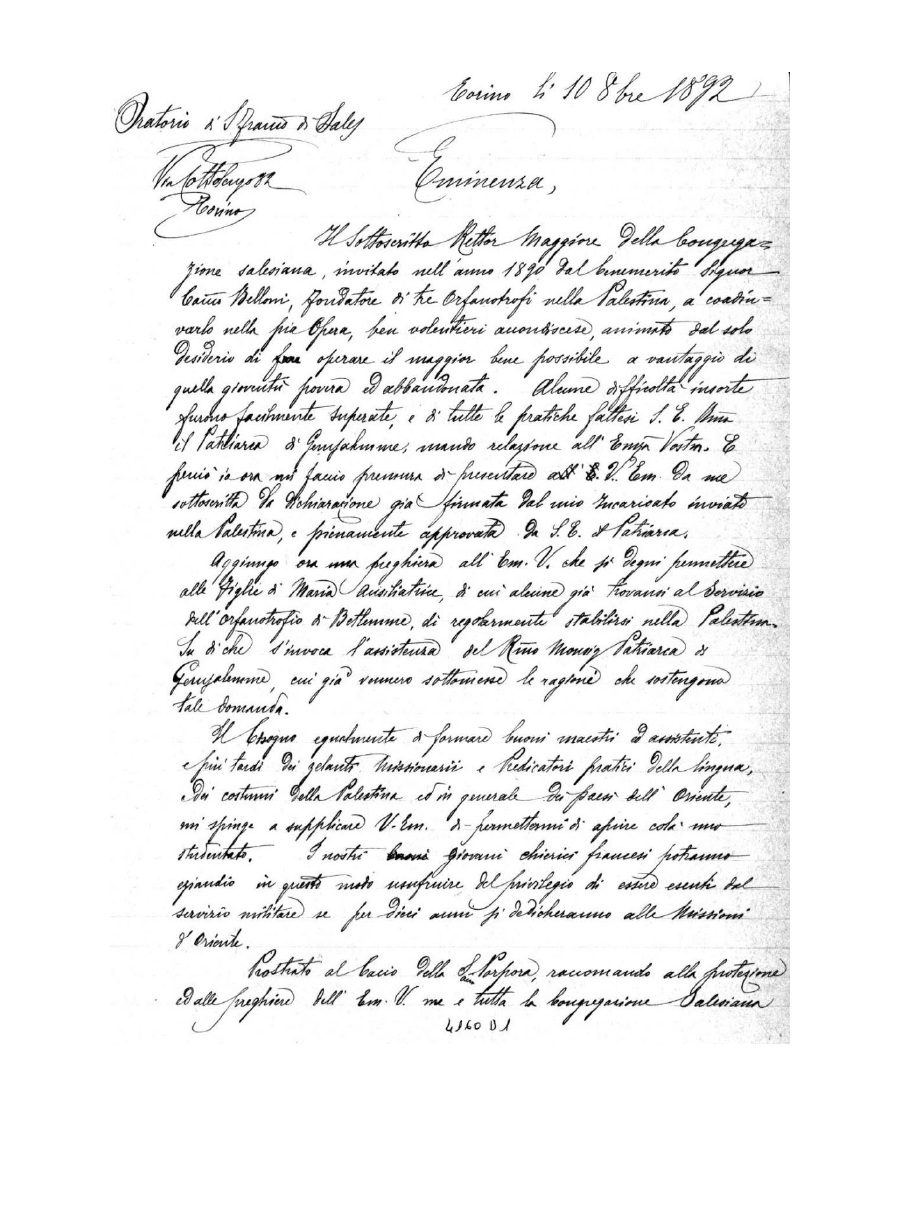 Torino li 10 8bre 1892
Oratorio di S. Franco di Sales
Via Cottolengo 32
Torino
Eminenza,
Il Sottoscritto Rettor Maggiore della Congrega=
zione salesiana, invitato nell'anno 1890 dal benemerito Signor
Canco Belloni, fondatore di tre Orfanotrofi nella Palestina, a coadiu=
varlo nella pia Opera, ben volentieri accondiscese, animato dal solo
desiderio di operare il maggior bene possibile a vantaggio di
quella gioventù povera ed abbandonata. Alcune difficoltà insorte
furono facilmente superate, e di tutte le pratiche fattesi S. E.
il Patriarca di Gerusalemme, mandò relazione all' Emza Vostra. E
perciò io ora mi faccio premura di presentare a V. Em. da me
sottoscritta la Dichiarazione già firmata dal mio Incaricato inviato
nella Palestina, e pienamente approvata da S. E. il Patriarca.
Aggiungo ora una preghiera all' Em. V. che si degni permettere
alle Figlie di Maria Ausiliatrice, di cui alcune già trovansi al Servizio
dell'Orfanotrofio di Betlemme, di regolarmente stabilirsi nella Palestina.
Su di che s'invoca l'assistenza del Rmo Monsig Patriarca di
Gerusalemme, cui già vennero sottomesse le ragioni che sostengono
tale domanda.
Il bisogno egualmente di formare buoni maestri ed assistenti,
e più tardi dei zelanti Missionarii e Predicatori pratici della lingua,
e dei costumi della Palestina ed in generale dei paesi dell' Oriente,
mi spinge a supplicare V. Em. di permettermi di aprire colà uno
studentato. I nostri giovani chierici francesi potranno
eziandio in questo modo usufruire del privilegio di essere esenti dal
servizio militare se per dieci anni si dedicheranno alle Missioni
d'Oriente.
Prostrato al bacio della Porpora, raccomando alla protezione
ed alle preghiere dell' Em. V. me e tutta la Congregazione Salesiana